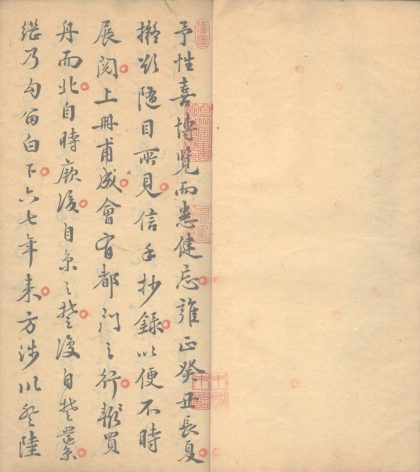 予性喜博覽而患健忘雍正癸丑長夏
擬欲隨目所見信手抄錄以便不時
展閱上冊甫成會有都門之行輒買
舟而北自時厥後自京之楚復自楚
继乃勾留白下六七年来方涉川登陸